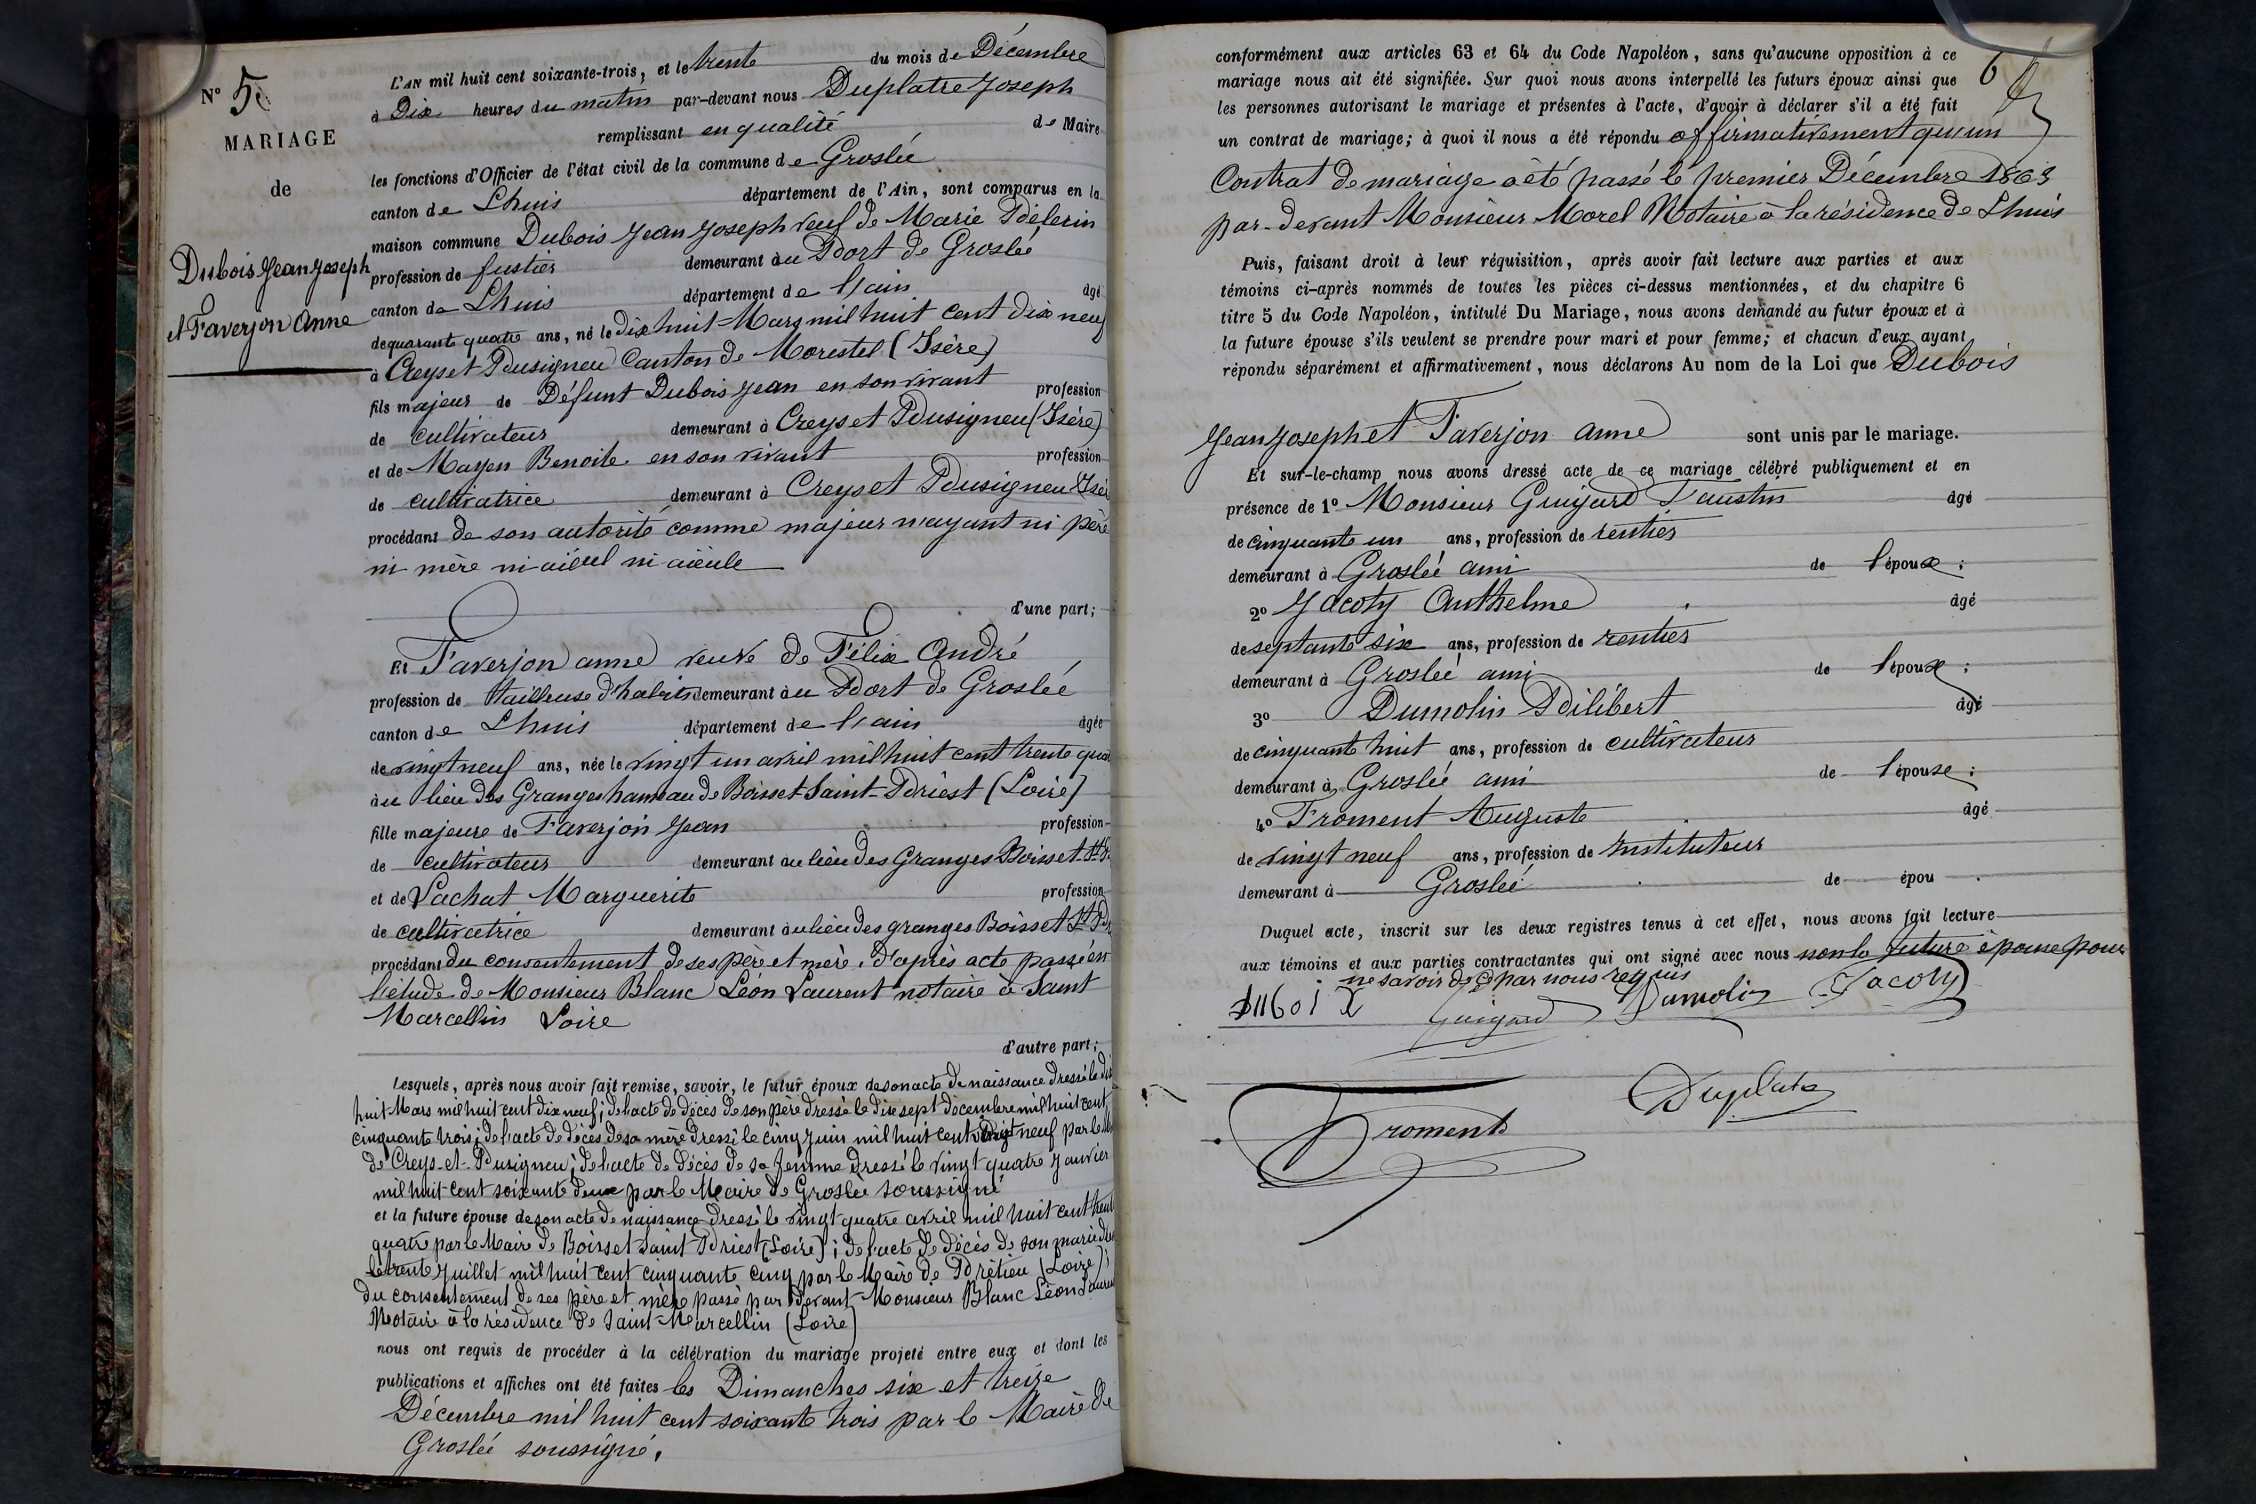 N° 5
MARIAGE
de
Dubois Jean Joseph
et Faverjon Anne
L'AN mil huit cent soixante-trois, et le trente du mois de Décembre
à Dix heures du matin par-devant nous Duplatre Joseph
remplissant en qualité de Maire
les fonctions d'Officier de l'état civil de la commune de Groslée
canton de Lhuis département de l'Ain, sont comparus en la
maison commune Dubois Jean Joseph veuf de Marie Pélerin
profession de fustier demeurant au Port de Groslée
canton de Lhuis département de l'ain âgé
de quarante quatre ans, né le dix huit Mars mil huit cent dix neuf
à Creys et Pusigneu Canton de Morestel (Isère)
fils majeur de Défunt Dubois Jean en son vivant profession
de cultivateur demeurant à Creys et Pusigneu (Isère)
et de Mayen Benoite en son vivant profession
de cultivatrice demeurant à Creys et Pusigneu Isè
procédant de son autorité comme majeur n'ayant ni père
ni mère ni aïeul ni aïeule
d'une part;
Et Faverjon anne veuve de Félix André
profession de tailleuse d'habits demeurant au Port de Groslée
canton de Lhuis département de l'ain âgée
de vingt neuf ans, née le vingt un avril mil huit cent trente qua
au lieu des Granges hameau de Boisset Saint-Priest (Loire)
fille majeure de Faverjon Jean profession
de cultivateur demeurant au lieu des Granges Boisset St P
et de Lachat Marguerite profession
de cultivatrice demeurant au lieu des granges Boisset St Pr
procédant du consentement de ses père et mère, d'après acte passé en
l'étude de Monsieur Blanc Léon Laurent notaire à Saint
Marcellin Loire
d'autre part;
Lesquels, après nous avoir fait remise, savoir, le futur époux de son acte de naissance dressé le dix
huit Mars mil huit cent dix neuf; de l'acte de décès de son père dressé le dix sept décembre mil huit cent
cinquante trois; de l'acte de décès de sa mère dressé le cinq Juin mil huit cent vingt neuf par le M
de Creys-et-Pusigneu; de l'acte de décès de sa femme dressé le vingt quatre Janvier
mil huit cent soixante deux par le Maire de Groslée soussigné
et la future épouse de son acte de naissance dressé le vingt quatre avril mil huit cent trent
quatre par le Maire de Boisset Saint Priest (Loire); de l'acte de décès de son mari d
le trente Juillet mil huit cent cinquante cinq par le Maire de Prétieu (Loire);
du consentement de ses père et mère passé par devant Monsieur Blanc Léon Lauren
Notaire à la résidence de Saint-Marcellin (Loire)
nous ont requis de procéder à la célébration du mariage projeté entre eux et dont les
publications et affiches ont été faites les Dimanches six et treize
Décembre mil huit cent soixante trois par le Maire de
Groslée soussigné.
6
conformément aux articles 63 et 64 du Code Napoléon, sans qu'aucune opposition à ce
mariage nous ait été signifiée. Sur quoi nous avons interpellé les futurs époux ainsi que
les personnes autorisant le mariage et présentes à l'acte, d'avoir à déclarer s'il a été fait
un contrat de mariage; à quoi il nous a été répondu affirmativement qu'un
Contrat de mariage a été passé le premier Décembre 1863
par-devant Monsieur Morel Notaire à la résidence de Lhuis
Puis, faisant droit à leur réquisition, après avoir fait lecture aux parties et aux
témoins ci-après nommés de toutes les pièces ci-dessus mentionnées, et du chapitre 6
titre 5 du Code Napoléon, intitulé Du Mariage, nous avons demandé au futur époux et à
la future épouse s'ils veulent se prendre pour mari et pour femme; et chacun d'eux ayant
répondu séparément et affirmativement, nous déclarons Au nom de la Loi que Dubois
Jean Joseph et Faverjon anne sont unis par le mariage.
Et sur-le-champ nous avons dressé acte de ce mariage célébré publiquement et en
présence de 1° Monsieur Guigard Faustin âgé
de cinquante un ans, profession de rentier
demeurant à Groslée ami de l'époux;
2° Jacoty Anthelme âgé
de septante six ans, profession de rentier
demeurant à Groslée ami de l'époux;
3° Dumolin Philibert âgé
de cinquante huit ans, profession de cultivateur
demeurant à Groslée ami de l'épouse;
4° Froment Auguste âgé
de vingt neuf ans, profession de Instituteur
demeurant à Groslée de épou
Duquel acte, inscrit sur les deux registres tenus à cet effet, nous avons fait lecture
aux témoins et aux parties contractantes qui ont signé avec nous non la future épouse pour
ne savoir de ce par nous requis
Guigard Dumolin Jacoty
Froment Duplatre